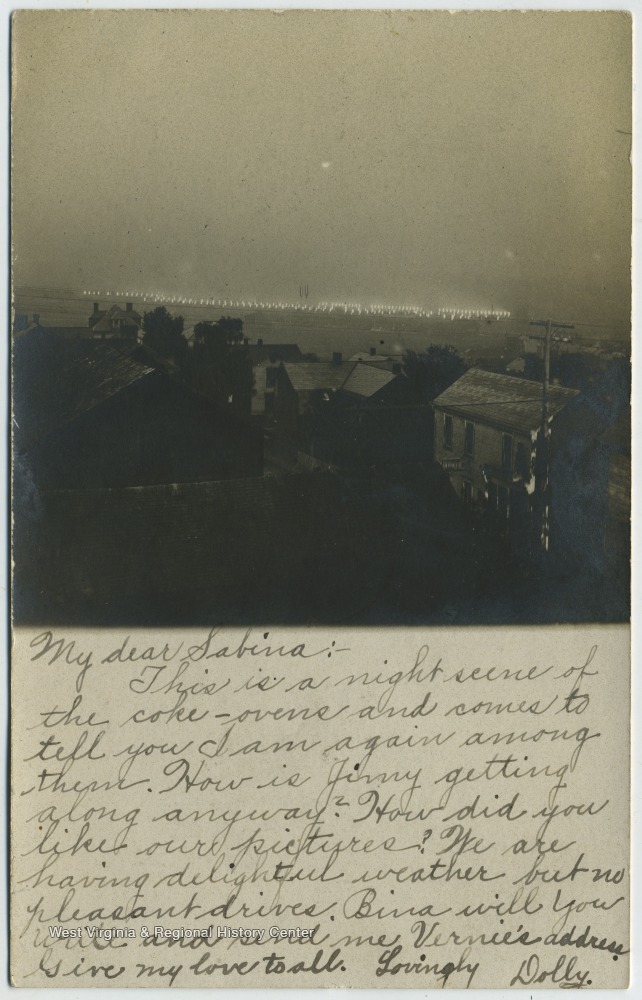 My dear Sabina:-
This is a night scene of
the coke-ovens and comes to
tell you I am again among
them. How is Jimy getting
along anyway? How did you
like our pictures? We are
having delightful weather but no
pleasant drives. Bina will you
and send me Vernie's address
Give my love to all. Lovingly Dolly.
West Virginia & Regional History Center